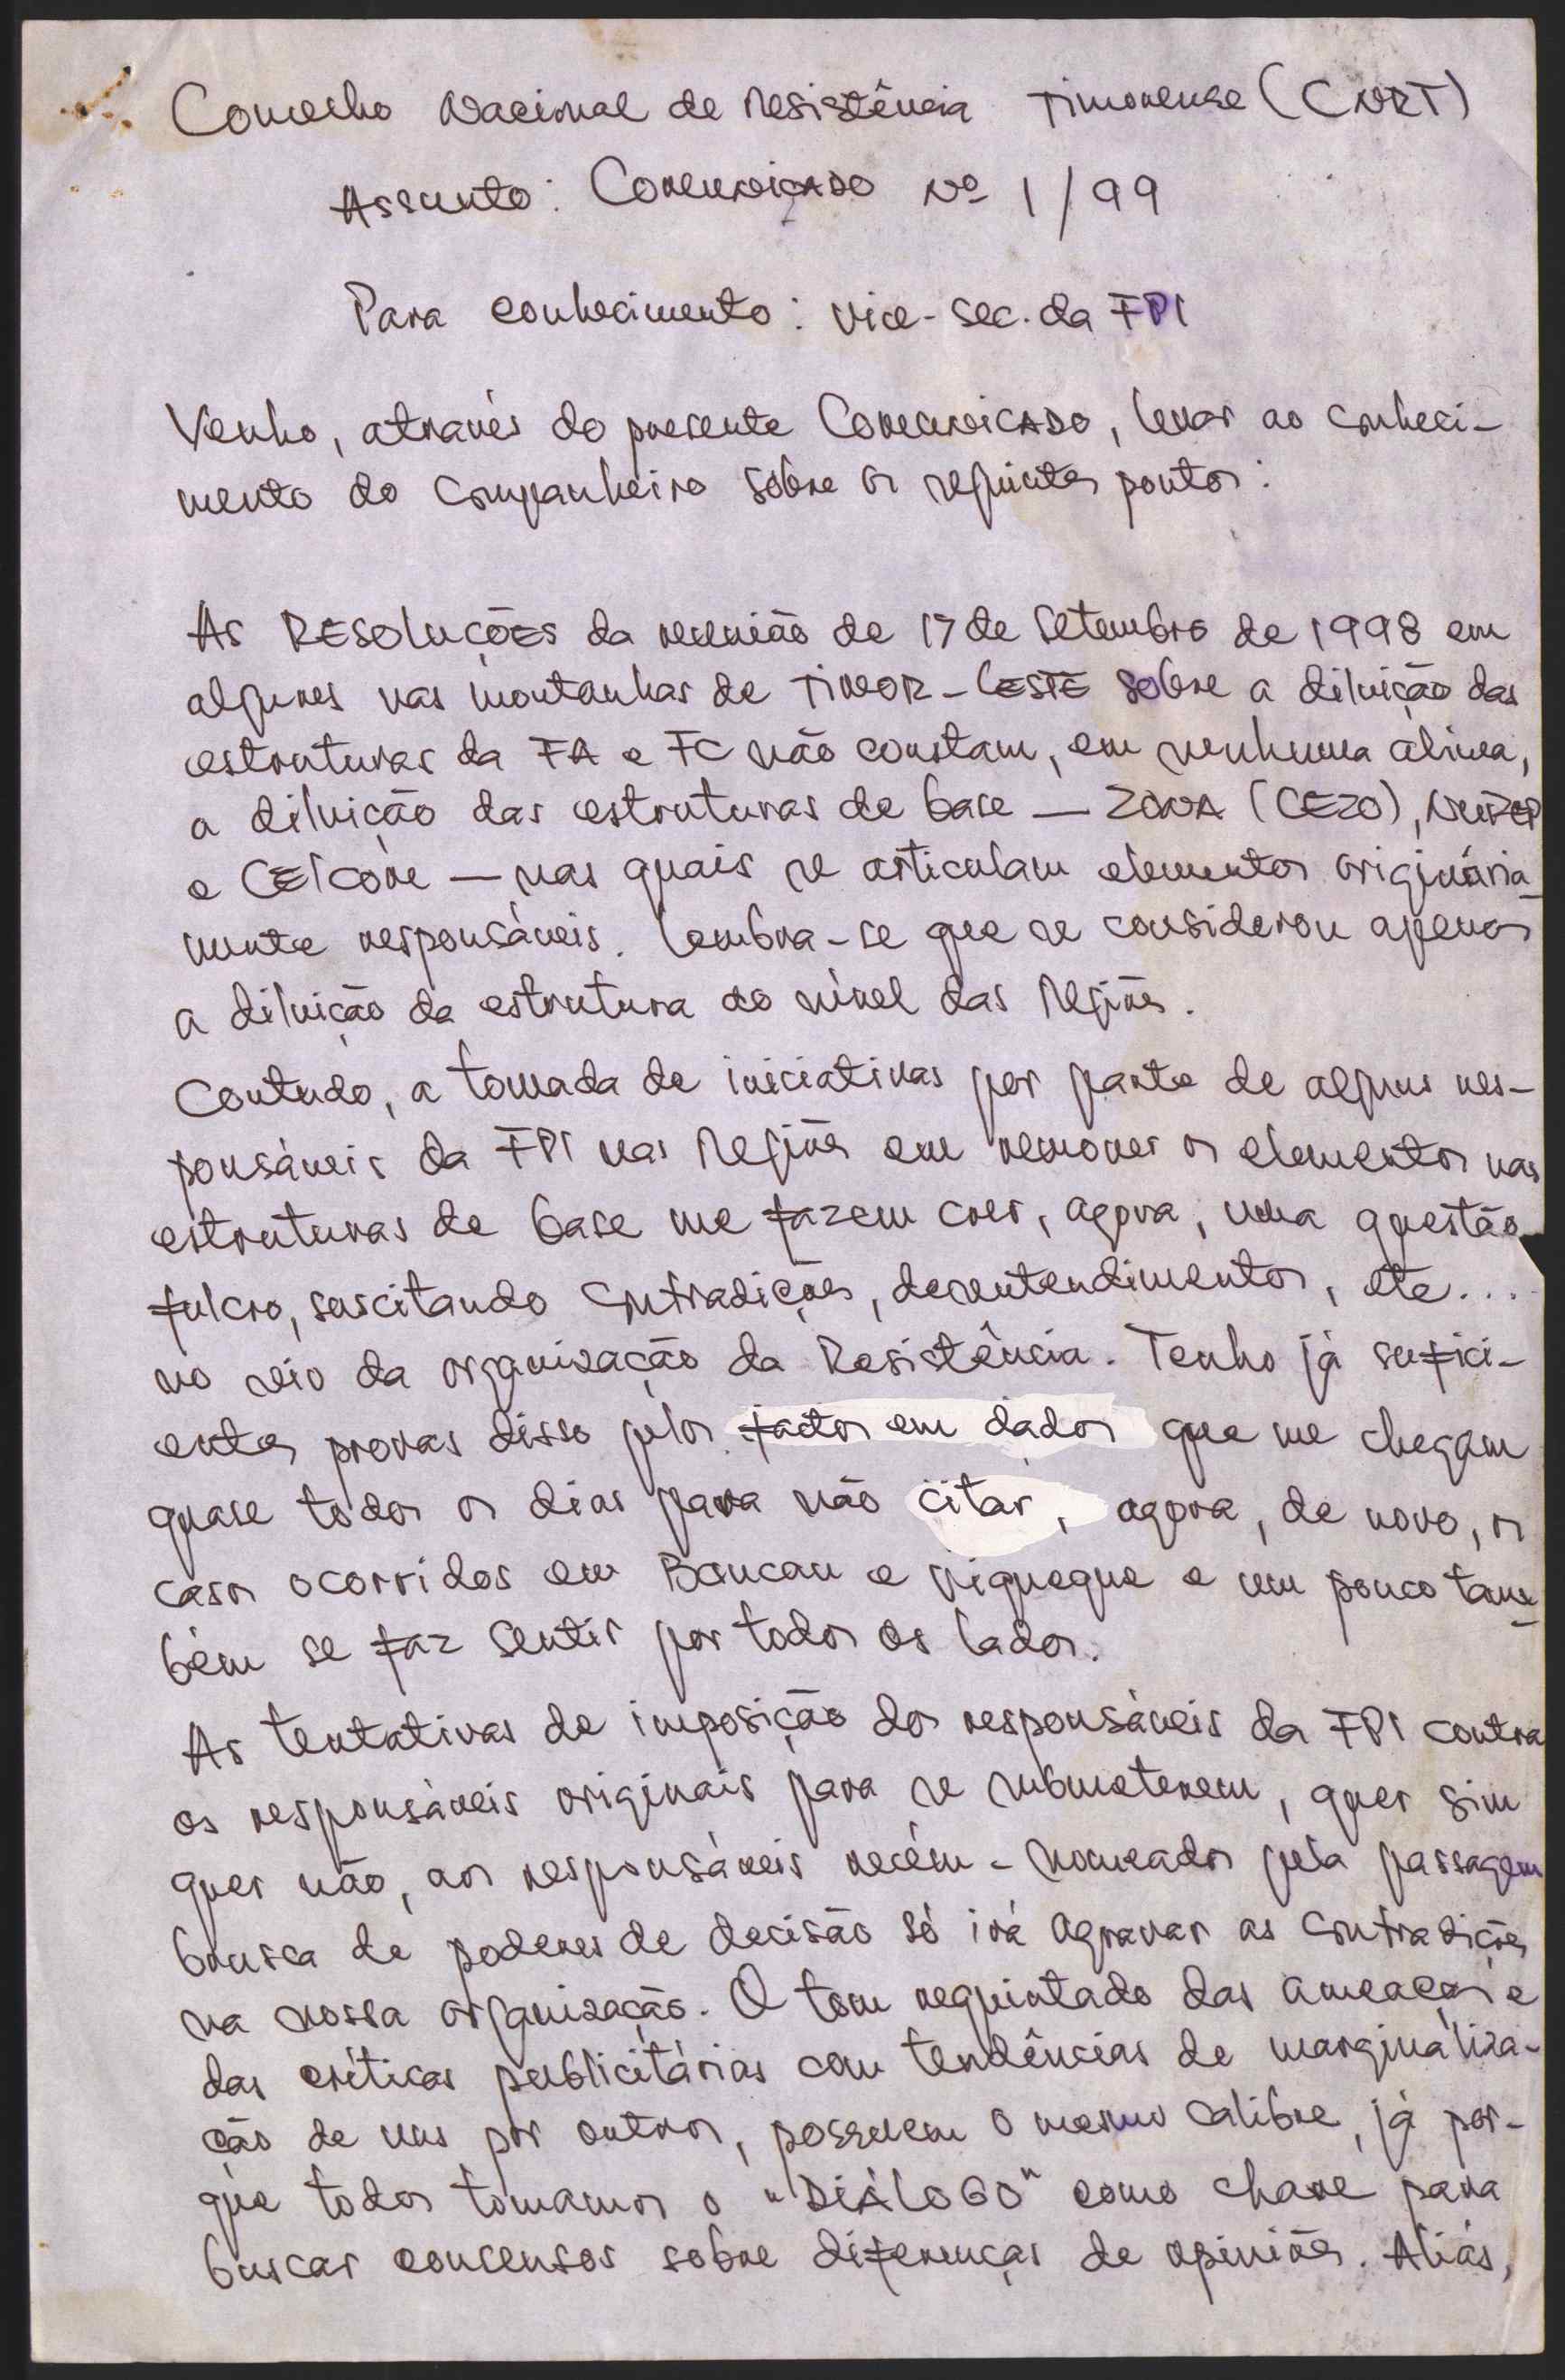 Concelho Nacional de Resistência Timorense (CNRT)
Assunto: COMUNICADO Nº 1/99
Para conhecimento: vice-sec. da FPI
Venho, através do presente COMUNICADO, levar ao conheci-
mento do Companheiro sobre os seguintes pontos:
As RESOLUÇÕES da reunião de 17 de Setembro de 1998 em
algures nas montanhas de TIMOR-LESTE sobre a diluição das
estruturas da FA e FC não constam, em nenhuma alínea,
a diluição das estruturas de base — ZONA (CEZO), NUREP
e CELCOM — nas quais se articulam elementos originária-
mente responsáveis. Lembra-se que se considerou apenas
a diluição da estrutura ao nível das Regiões.
Contudo, a tomada de iniciativas por parte de alguns res-
ponsáveis da FPI nas Regiões em remover os elementos nas
estruturas de base me fazem crer, agora, uma questão
fulcro, suscitando contradições, desentendimentos, etc...
no seio da organização da Resistência. Tenho já sufici-
entes provas disso pelos factos em dados que me chegam
quase todos os dias para não citar, agora, de novo, os
casos ocorridos em Baucau e Viqueque e um pouco tam-
bém se faz sentir por todos os lados.
As tentativas de imposição dos responsáveis da FPI contra
os responsáveis originais para se submeterem, quer sim
quer não, aos responsáveis recém-nomeados pela passagem
brusca de poderes de decisão só irá agravar as contradições
na nossa organização. O tom requintado das ameaças e
das críticas publicitárias com tendências de marginaliza-
ção de uns por outros, possuem o mesmo calibre, já por-
que todos tomamos o "DIÁLOGO" como chave para
buscar concensos sobre diferenças de opiniões. Aliás,